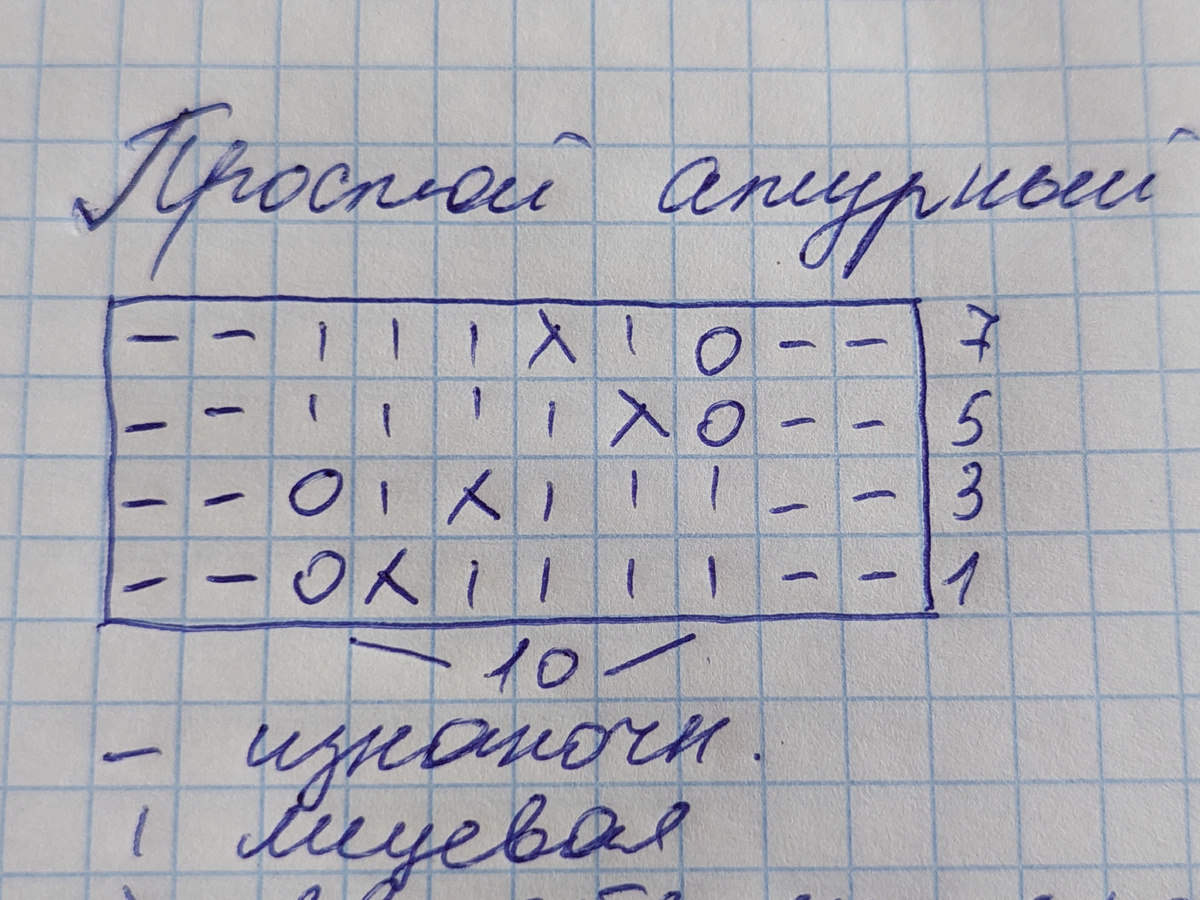 Простой ажурный
– – ı ı ı λ ı O – – 7
– – ı ı ı ı λ O – – 5
– – O ı X ı ı ı – – 3
– – O X ı ı ı ı – – 1
10
– изнаночн.
ı лицевая